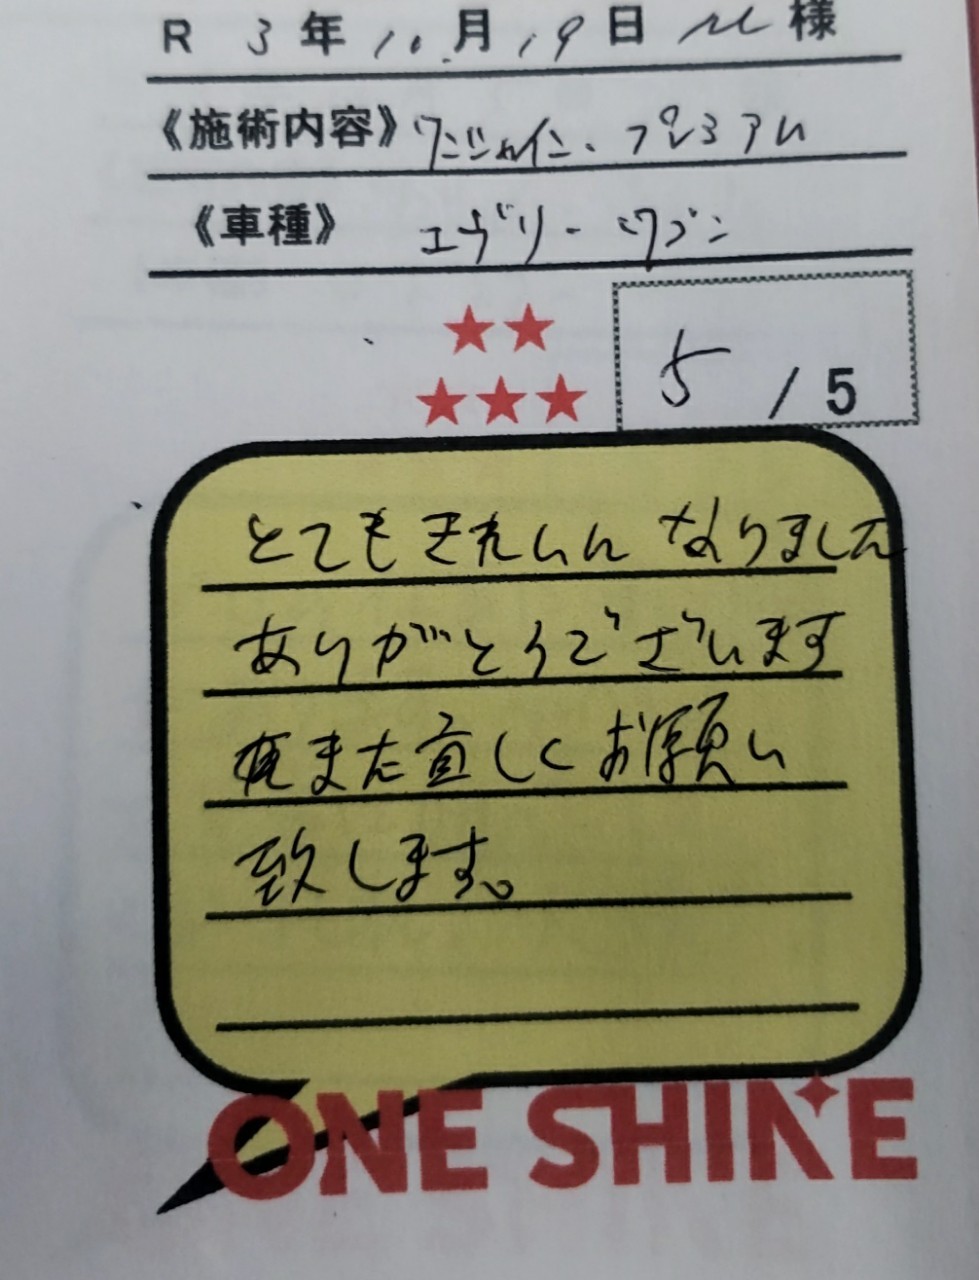 R 3年 10月 19日 M 様
《施術内容》ワンシャイン・プレミアム
《車種》エヴリーワゴン
5 / 5
とてもきれいに なりました
ありがとうございます
またしく お願い
致します。
ONE SHINE